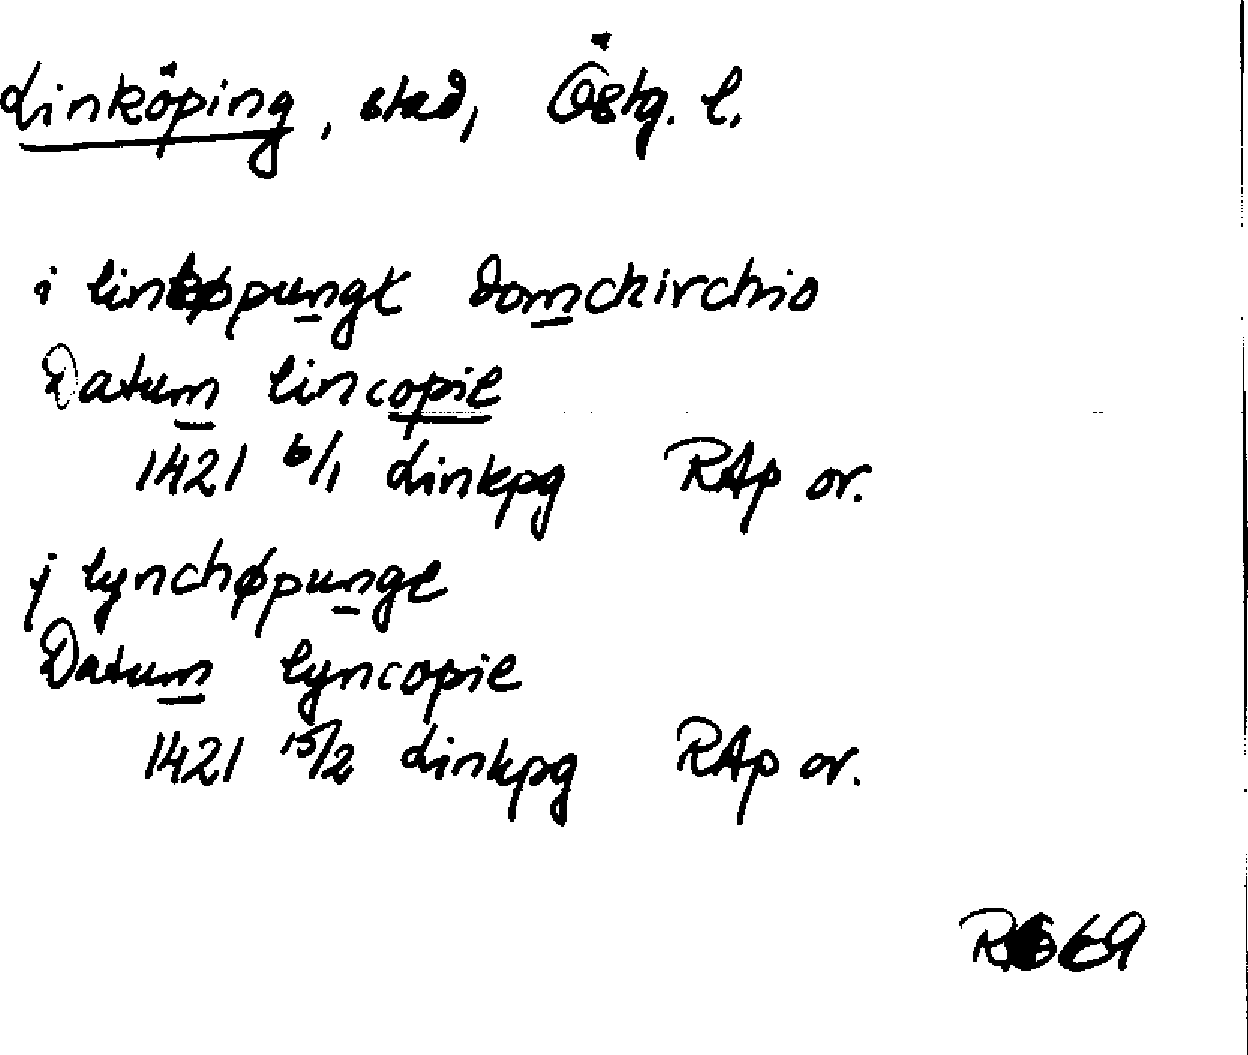 Linköping, stad, Östg. l.
i linkøpungt domckirchio
Datum lincopie
1421 6/1 Linkpg RAp or.
j lynchøpunge
Datum lyncopie
1421 15/2 Linkpg RAp or.
69